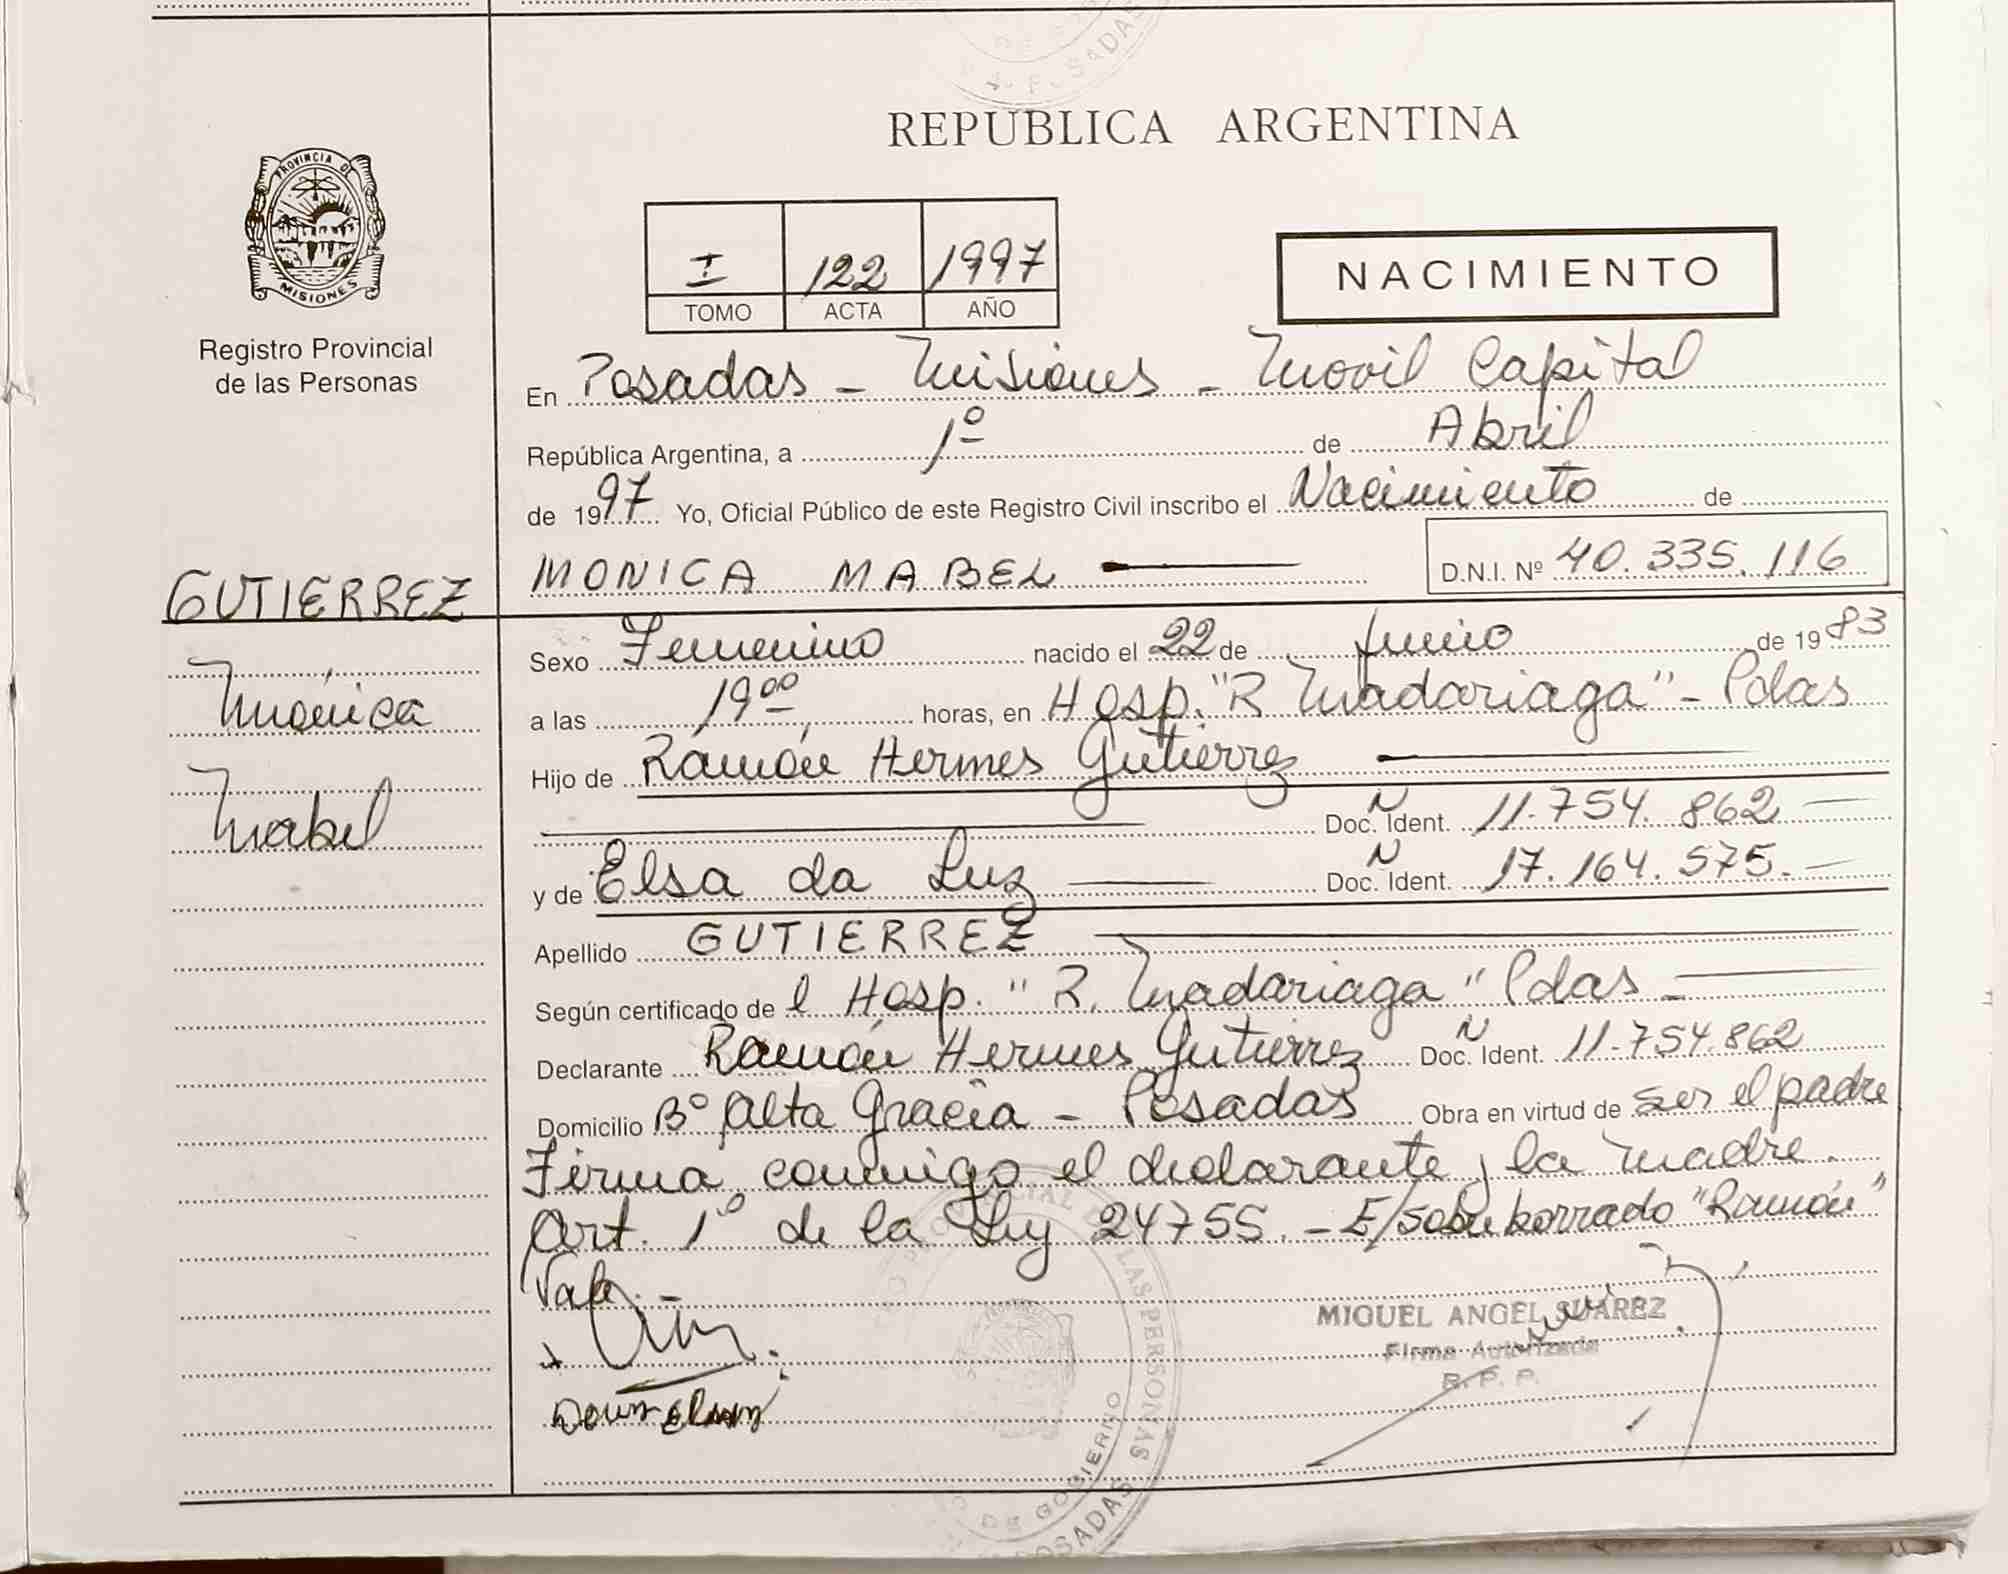 REPUBLICA ARGENTINA
PROVINCIA DE
MISIONES
Registro Provincial
de las Personas
I 122 1997
TOMO ACTA AÑO
NACIMIENTO
En Posadas - Misiones - Movil Capital
República Argentina, a 1º de Abril
de 1997 Yo, Oficial Público de este Registro Civil inscribo el Nacimiento de
MONICA MABEL D.N.I. Nº 40.335.116
GUTIERREZ
Mónica
Mabel
Sexo Femenino nacido el 22 de Junio de 1983
a las 19 00 horas, en Hosp. "R Madariaga" - Pdas
Hijo de Ramón Hermes Gutierrez
Doc. N Ident. 11.754.862
y de Elsa da Luz Doc. N Ident. 17.164.575.
Apellido GUTIERREZ
Según certificado de l Hosp. "R. Madariaga" Pdas -
Declarante Ramón Hermes Gutierrez Doc. N Ident. 11.754.862
Domicilio Bº Alta Gracia - Posadas Obra en virtud de ser el padre
Firma conmigo el declarante y la madre.
Art. 1º de la Ley 24755. - E/sobre borrado "Ramón"
Vale. -
MIGUEL ANGEL SUAREZ
Firma Autorizada
R. P. P.
LAS PERSONAS
DE GOBIERNO
POSADAS